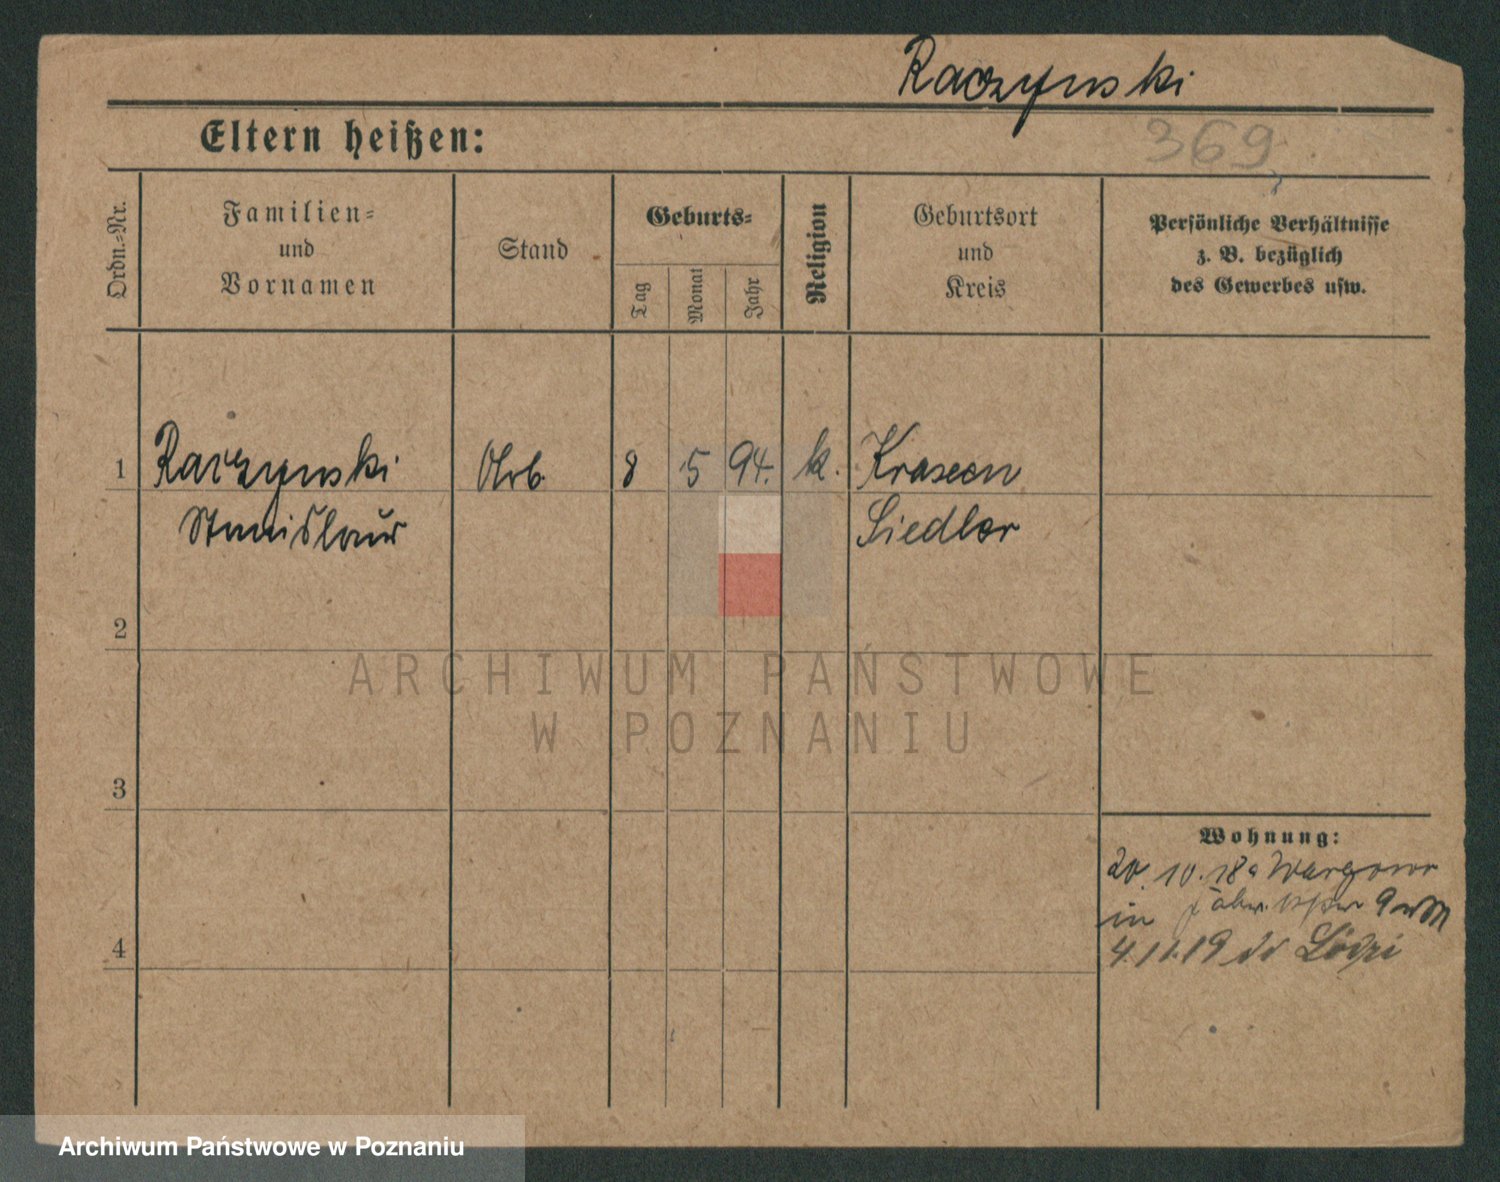 Raczynski
Eltern heißen:
369
Ordn.-Nr.
Familien-
und
Vornamen
Stand
Geburts-
Tag
Monat
Jahr
Religion
Geburtsort
und
Kreis
Persönliche Verhältnisse
z. B. bezüglich
des Gewerbes usw.
1 Raczynski Arb. 8 5 94. k.
Stanislaus Siedlec
2
ARCHIWUM PAŃSTWOWE
W POZNANIU
3
Wohnung:
20.10.18
in
4
4.11.19
Archiwum Państwowe w Poznaniu